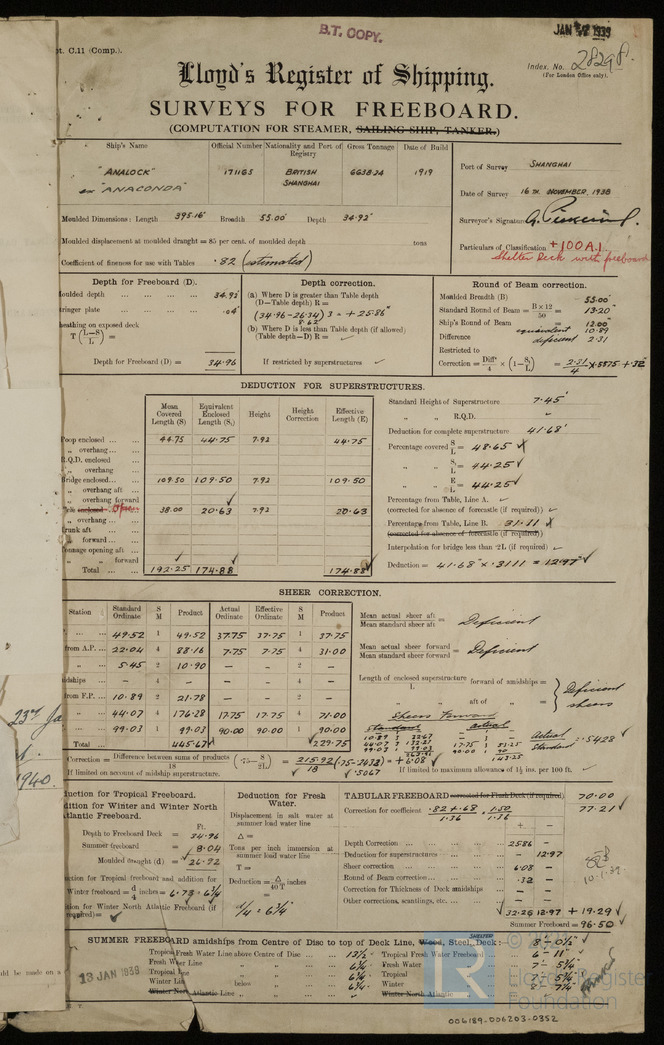 B.T. COPY.
JAN 1939
pt. C.11 (Comp.).
Index. No. 28298.
(For London Office only).
Lloyd's Register of Shipping.
SURVEYS FOR FREEBOARD.
(COMPUTATION FOR STEAMER, SAILING SHIP, TANKER.)
Ship's Name Official Number Nationality and Port of Registry Gross Tonnage Date of Build
"ANALOCK" 171165 BRITISH 1919
ex "ANACONDA" SHANGHAI
Port of Survey SHANGHAI
Date of Survey 16TH NOVEMBER, 1938
Surveyor's Signature
Particulars of Classification +100A.1
Shelter Deck with freeboard
Moulded Dimensions: Length 395.16' Breadth 55.00' Depth 34.92'
Moulded displacement at moulded draught = 85 per cent. of moulded depth tons
Coefficient of fineness for use with Tables .82 (estimated)
Depth for Freeboard (D).
Moulded depth 34.92
tringer plate .04
heathing on exposed deck
T (L-S/L) =
Depth for Freeboard (D) = 34.96
Depth correction.
(a) Where D is greater than Table depth
(D-Table depth) R =
(34.96-26.34) 3 = + 25.86"
8.62
(b) Where D is less than Table depth (if allowed)
(Table depth-D) R =
If restricted by superstructures
Round of Beam correction.
Moulded Breadth (B) 55.00'
Standard Round of Beam = B×12/50 = 13.20"
Ship's Round of Beam = 12.00"
equivalent 10.89
Difference deficient 2.31
Restricted to
Correction = Diff/4 × (1-S₁/L) = 2.31/4 × .5575 + .32
DEDUCTION FOR SUPERSTRUCTURES.
Mean Covered Length (S) Equivalent Enclosed Length (S₁) Height Height Correction Effective Length (E)
Poop enclosed 44.75 44.75 7.92 44.75
" overhang
R.Q.D. enclosed
" overhang
Bridge enclosed 109.50 109.50 7.92 109.50
" overhang aft
" overhang forward
enclosed Open 38.00 20.63 7.92 20.63
" overhang
Trunk aft
" forward
Tonnage opening aft
" " forward
Total 192.25 174.88 174.88
Standard Height of Superstructure 7.45'
" " R.Q.D.
Deduction for complete superstructure 41.68"
Percentage covered S/L = 48.65
" S₁/L = 44.25
" E/L = 44.25
Percentage from Table, Line A.
(corrected for absence of forecastle (if required))
Percentage from Table, Line B. 31.11
(corrected for absence of forecastle (if required))
Interpolation for bridge less than .2L (if required)
Deduction = 41.68" × .3111 = 12.97
SHEER CORRECTION.
Station Standard Ordinate S M Product Actual Ordinate Effective Ordinate S M Product
49.52 1 49.52 37.75 37.75 1 37.75
from A.P. 22.04 4 88.16 7.75 7.75 4 31.00
" 5.45 2 10.90 - - 2 -
idships - 4 - - - 4 -
from F.P. 10.89 2 21.78 - - 2 -
" 44.07 4 176.28 17.75 17.75 4 71.00
" 99.03 1 99.03 90.00 90.00 1 90.00
Total 445.67 229.75
Mean actual sheer aft / Mean standard sheer aft = Deficient
Mean actual sheer forward / Mean standard sheer forward = Deficient
Length of enclosed superstructure forward of amidships =
L " aft of " = Deficient sheers
Sheers Forward
Standard Actual
Actual / Standard = .5428
Correction = Difference between sums of products/18 (.75-S/2L) = 215.92/18 (.75-.2433) = + 6.08
.5067
If limited on account of midship superstructure.
If limited to maximum allowance of 1½ ins. per 100 ft.
23rd Ja
1940.
uction for Tropical Freeboard.
dition for Winter and Winter North
tlantic Freeboard.
Ft.
Depth to Freeboard Deck = 34.96
Summer freeboard = 8.04
Moulded draught (d) = 26.92
uction for Tropical freeboard and addition for
Winter freeboard = d/4 inches = 6.73 = 6¾
tion for Winter North Atlantic Freeboard (if
required) =
Deduction for Fresh Water.
Displacement in salt water at
summer load water line
Δ =
Tons per inch immersion at
summer load water line
T =
Deduction = Δ/40 T inches
=
d/4 = 6¾"
TABULAR FREEBOARD corrected for Flush Deck (if required) 70.00
Correction for coefficient .82 + .68/1.36 × 1.50/1.36 77.21
+ -
Depth Correction 25.86 -
Deduction for superstructures - 12.97
Sheer correction 6.08 -
Round of Beam correction .32 -
Correction for Thickness of Deck amidships
Other corrections, scantlings, etc.
32.26 12.97 + 19.29
Summer Freeboard = 96.50
SUMMER FREEBOARD amidships from Centre of Disc to top of Deck Line, Wood, Steel, Deck: SHELTER 8 - 0½"
Tropical Fresh Water Line above Centre of Disc 13½" Tropical Fresh Water Freeboard 6 - 11"
Fresh Water Line 6¾ Fresh Water 7 - 5¾"
Tropical Line 6¾ Tropical 7 - 5¾"
Winter Line below 6¾ Winter 8 - 7¼"
Winter North Atlantic Line Winter North Atlantic
13 JAN 1939
uld be made on
© 2021
LR
Lloyd's Register
Foundation
006189-006203-0352